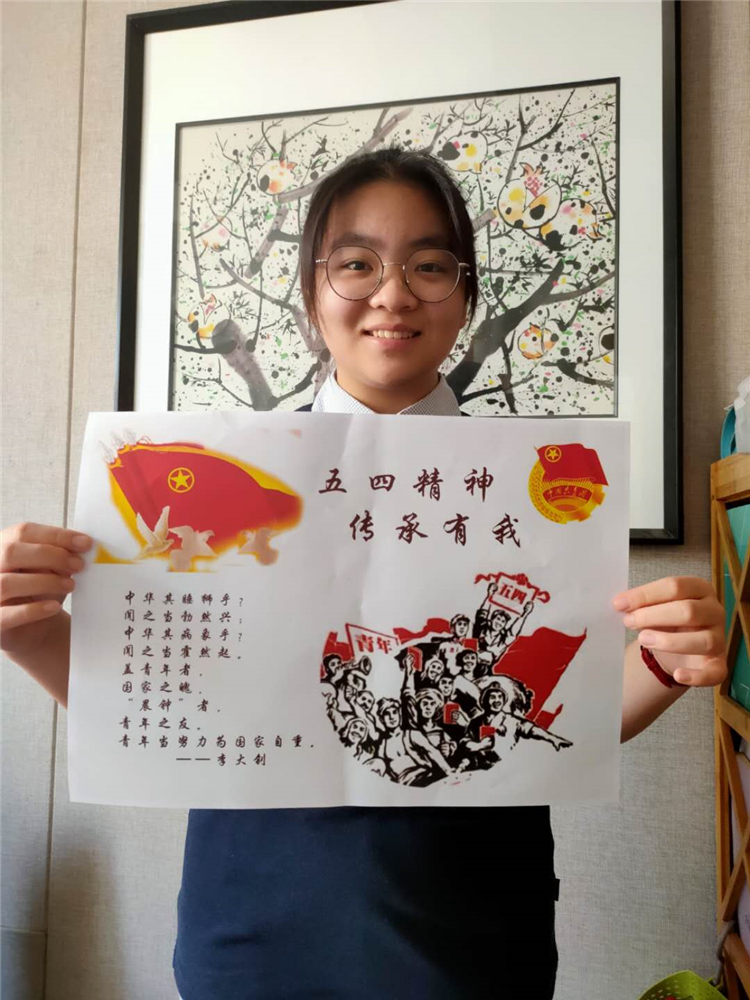 五四精神
传承有我
中华其睡狮乎？
闻之当勃然兴；
中华其病象乎？
闻之当霍然起。
盖青年者，
国家之魄，
“晨钟”者，
青年之友。
青年当努力为国家自重。
——李大钊
五四
青年